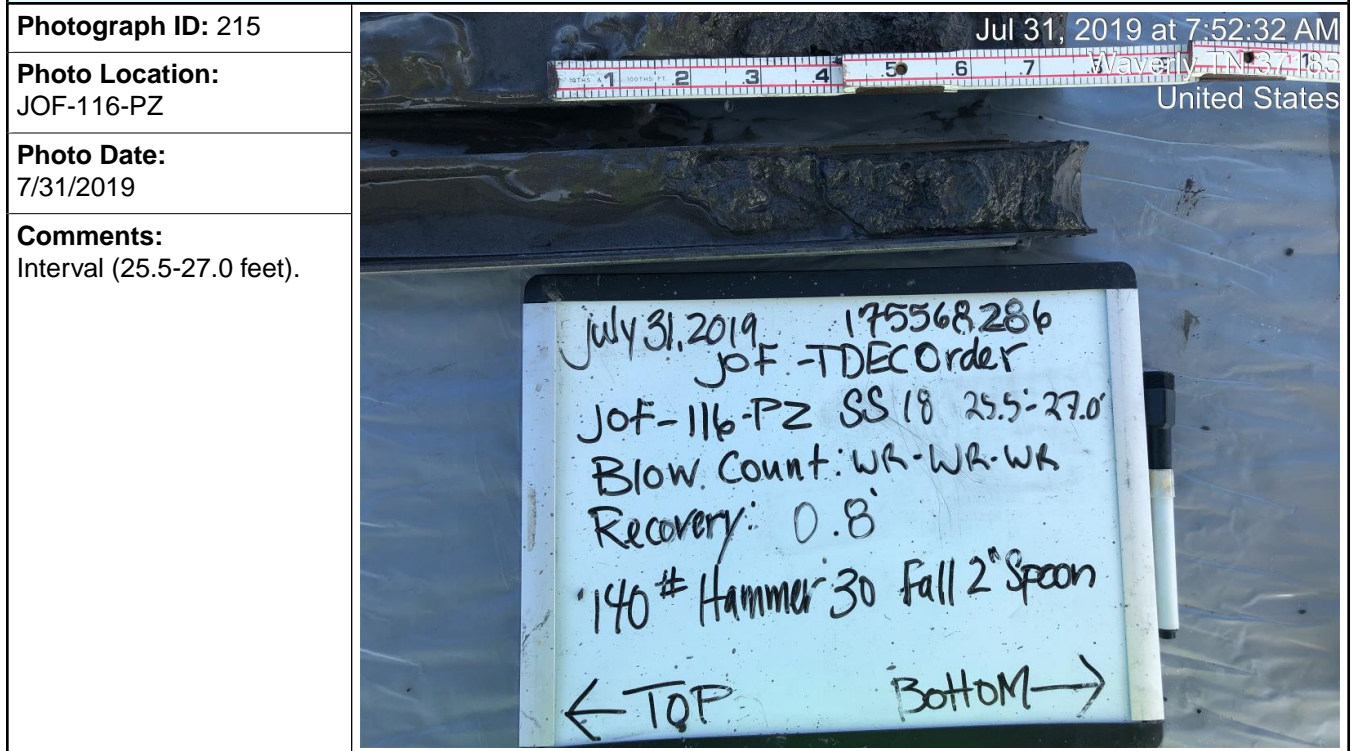 Photograph ID: 215
Photo Location:
JOF-116-PZ
Photo Date:
7/31/2019
Comments:
Interval (25.5-27.0 feet).
Jul 31, 2019 at 7:52:32 AM
Waverly TN 37185
United States
10THS & 1 100THS FT. 2 .3 .4 .5 .6 .7 .8
July 31, 2019 175568286
JOF - TDEC Order
JOF-116-PZ SS 18 25.5'-27.0'
Blow Count: WR-WR-WR
Recovery: 0.8'
140# Hammer 30 Fall 2" Spoon
← TOP BOTTOM →